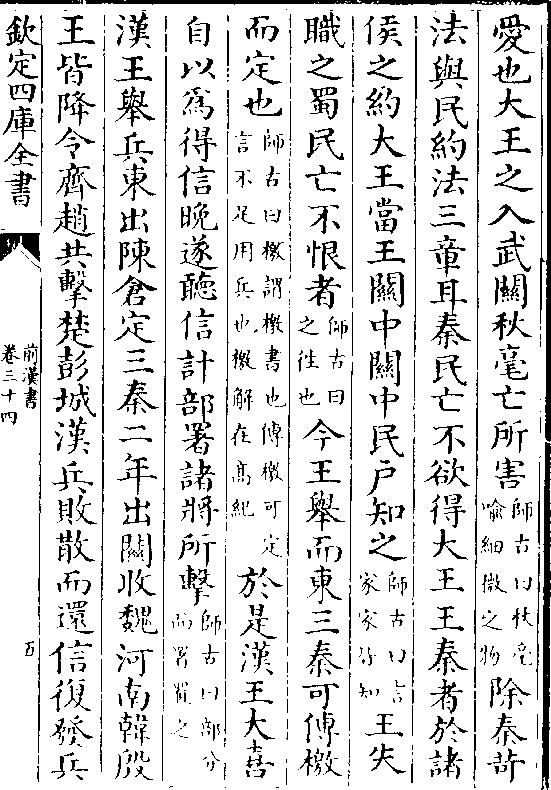 愛也大王之入武關秋毫亡所害師古曰秋毫喻細微之物除秦苛
法與民約法三章耳秦民亡不欲得大王王秦者於諸
侯之約大王當王關中關中民户知之師古曰言家家皆知王失
職之蜀民亡不恨者師古曰之往也今王舉而東三秦可傳檄
而定也師古曰檄謂檄書也傳檄可定言不足用兵也檄解在高紀於是漢王大喜
自以爲得信晚遂聽信計部署諸將所擊師古曰部分而署置之
漢王舉兵東出陳倉定三秦二年出關收魏河南韓殷
王皆降令齊趙共擊楚彭城漢兵敗散而還信復發兵
欽定四庫全書
前漢書
卷三十四
五